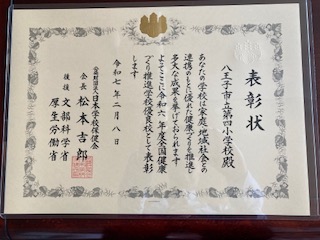 表彰状
八王子市立第四小学校殿
あなたの学校は家庭、地域社会との
連携のもとに優れた健康づくりを推進し
多大な成果を挙げておられます
よってここに令和六年度全国健康
づくり推進学校優良校として表彰
します
令和七年二月八日
公益財団法人日本学校保健会
会長 松本吉郎
後援 文部科学省
厚生労働省